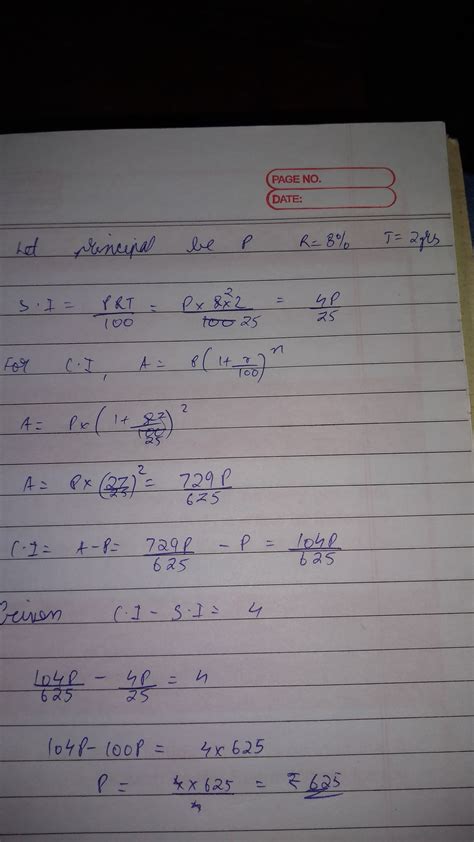 PAGE NO.
DATE:
Let principal be P R = 8% T = 2yrs
S.I = PRT/100 = P x 8x2/100 25 = 4P/25
For C.I, A = P(1 + r/100)^n
A = Px(1 + 8 2/100 25)^2
A = Px(27/25)^2 = 729P/625
C.I = A-P = 729P/625 - P = 104P/625
Given C.I - S.I = 4
104P/625 - 4P/25 = 4
104P-100P = 4x625
P = 4x625/4 = ₹625